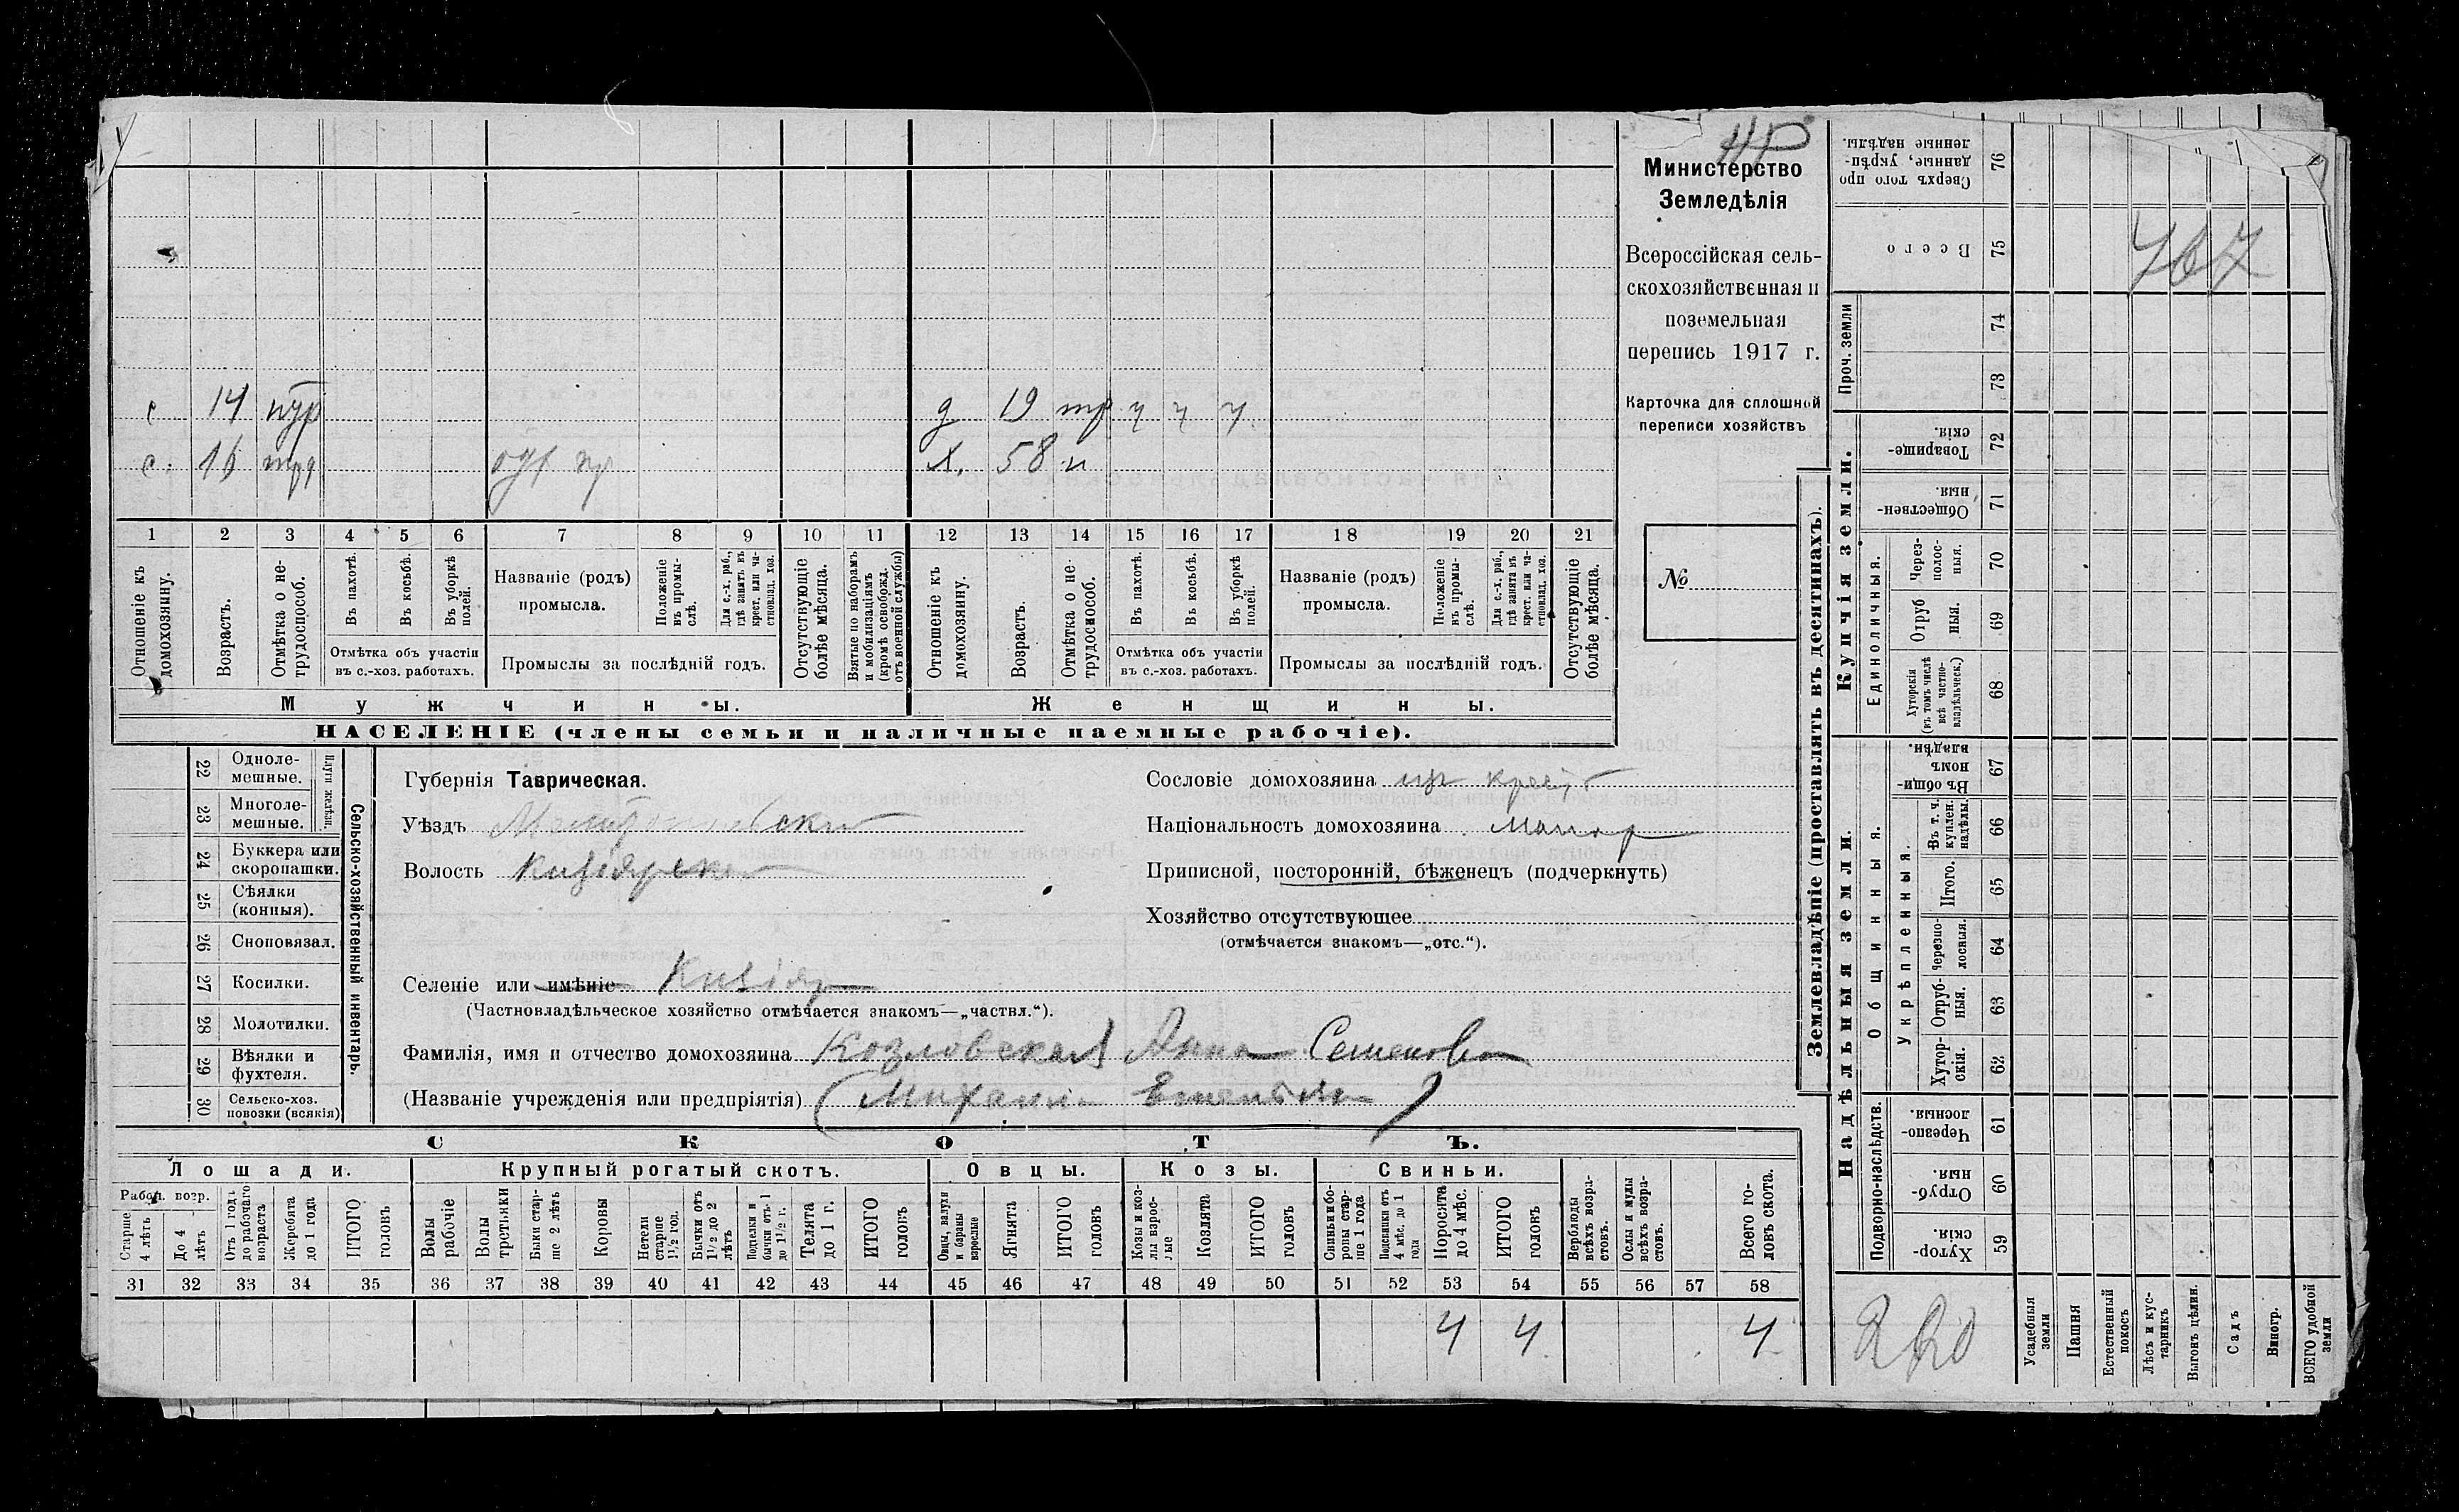 Министерство
Земледѣлія
Всероссійская сель-
скохозяйственная и
поземельная
перепись 1917 г.
Карточка для сплошной
переписи хозяйствъ
№
с 14
с. 16
д 19 ч ч ч
х. 58 н
1 2 3 4 5 6 7 8 9 10 11 12 13 14 15 16 17 18 19 20 21
Отношеніе къ домохозяину.
Возрастъ.
Отмѣтка о не-трудоспособ.
Въ пахотѣ.
Въ косьбѣ.
Въ уборкѣ полей.
Отмѣтка объ участіи
въ с.-хоз. работахъ.
Названіе (родъ)
промысла.
Положеніе въ промы-слѣ.
Для с.-х. раб., гдѣ занятъ въ крест. или ча-стновлад. хоз.
Промыслы за послѣдній годъ.
Отсутствующіе болѣе мѣсяца.
Взятые по наборамъ и мобилизаціямъ (кромѣ освобожд. отъ военной службы)
Отношеніе къ домохозяину.
Возрастъ.
Отмѣтка о не-трудоспособ.
Въ пахотѣ.
Въ косьбѣ.
Въ уборкѣ полей.
Отмѣтка объ участіи
въ с.-хоз. работахъ.
Названіе (родъ)
промысла.
Положеніе въ промы-слѣ.
Для с.-х. раб., гдѣ занята въ крест. или ча-стновлад. хоз.
Промыслы за послѣдній годъ.
Отсутствующіе болѣе мѣсяца.
Мужчины.
Женщины.
НАСЕЛЕНІЕ (члены семьи и наличные наемные рабочіе).
22 Одноле-мешные.
23 Многоле-мешные.
Плуги желѣзн.
24 Буккера или скоропашки.
25 Сѣялки (конныя).
26 Сноповязал.
27 Косилки.
28 Молотилки.
29 Вѣялки и фухтеля.
30 Сельско-хоз. повозки (всякія)
Сельско-хозяйственный инвентарь.
Губернія Таврическая.
Уѣздъ
Волость Кизіярская
Селеніе или имѣніе Кизіяр
(Частновладѣльческое хозяйство отмѣчается знакомъ—„частвл.“).
Фамилія, имя и отчество домохозяина Козловская Анна Семеновна
(Названіе учрежденія или предпріятія)
Сословіе домохозяина
Національность домохозяина малор
Приписной, посторонній, бѣженецъ (подчеркнуть)
Хозяйство отсутствующее
(отмѣчается знакомъ—„отс.“).
СКОТЪ.
Лошади.
Крупный рогатый скотъ.
Овцы.
Козы.
Свиньи.
Рабоч. возр.
Старше 4 лѣтъ
До 4 лѣтъ
Отъ 1 года до рабочаго возраста
Жеребята до 1 года
ИТОГО головъ
Волы рабочіе
Волы третьяки
Быки стар-ше 2 лѣтъ
Коровы
Нетели старше 1½ год.
Бычки отъ 1½ до 2 лѣтъ
Подтелки и бычки отъ 1 до 1½ г.
Телята до 1 г.
ИТОГО головъ
Овцы, валухи и бараны взрослые
Ягнята
ИТОГО головъ
Козы и коз-лы взрос-лые
Козлята
ИТОГО головъ
Свиньи и бо-ровы стар-ше 1 года
Подсвинки отъ 4 мѣс. до 1 года
Поросята до 4 мѣс.
ИТОГО головъ
Верблюды всѣхъ возра-стовъ.
Ослы и мулы всѣхъ возра-стовъ.
Всего го-ловъ скота.
31 32 33 34 35 36 37 38 39 40 41 42 43 44 45 46 47 48 49 50 51 52 53 54 55 56 57 58
4 4 4
Землевладѣніе (проставлять въ десятинахъ).
Сверхъ того про данные, укрѣп-ленные надѣлы. 76
Всего 75
Проч. земли 74 73
Купчія земли.
Товарище-скія. 72
Обществен-ныя. 71
Единоличныя.
Через-полос-ныя. 70
Отруб ныя. 69
Хуторскія (въ томъ числѣ всѣ частно-владѣльческ.) 68
Надѣльныя земли.
Общинныя.
Въ общи номъ владѣн. 67
Укрѣпленныя.
Въ т. ч. куплен. надѣлы. 66
Итого. 65
Черезпо-лосныя. 64
Отруб-ныя. 63
Хутор-скія. 62
Подворно-наслѣдств.
Черезпо-лосныя. 61
Отруб-ныя. 60
Хутор-скія. 59
Усадебныя земли
Пашня
Естественный покосъ
Лѣсъ и кус-тарникъ
Выгонъ цѣлин.
Садъ
Виногр.
ВСЕГО удобной земли